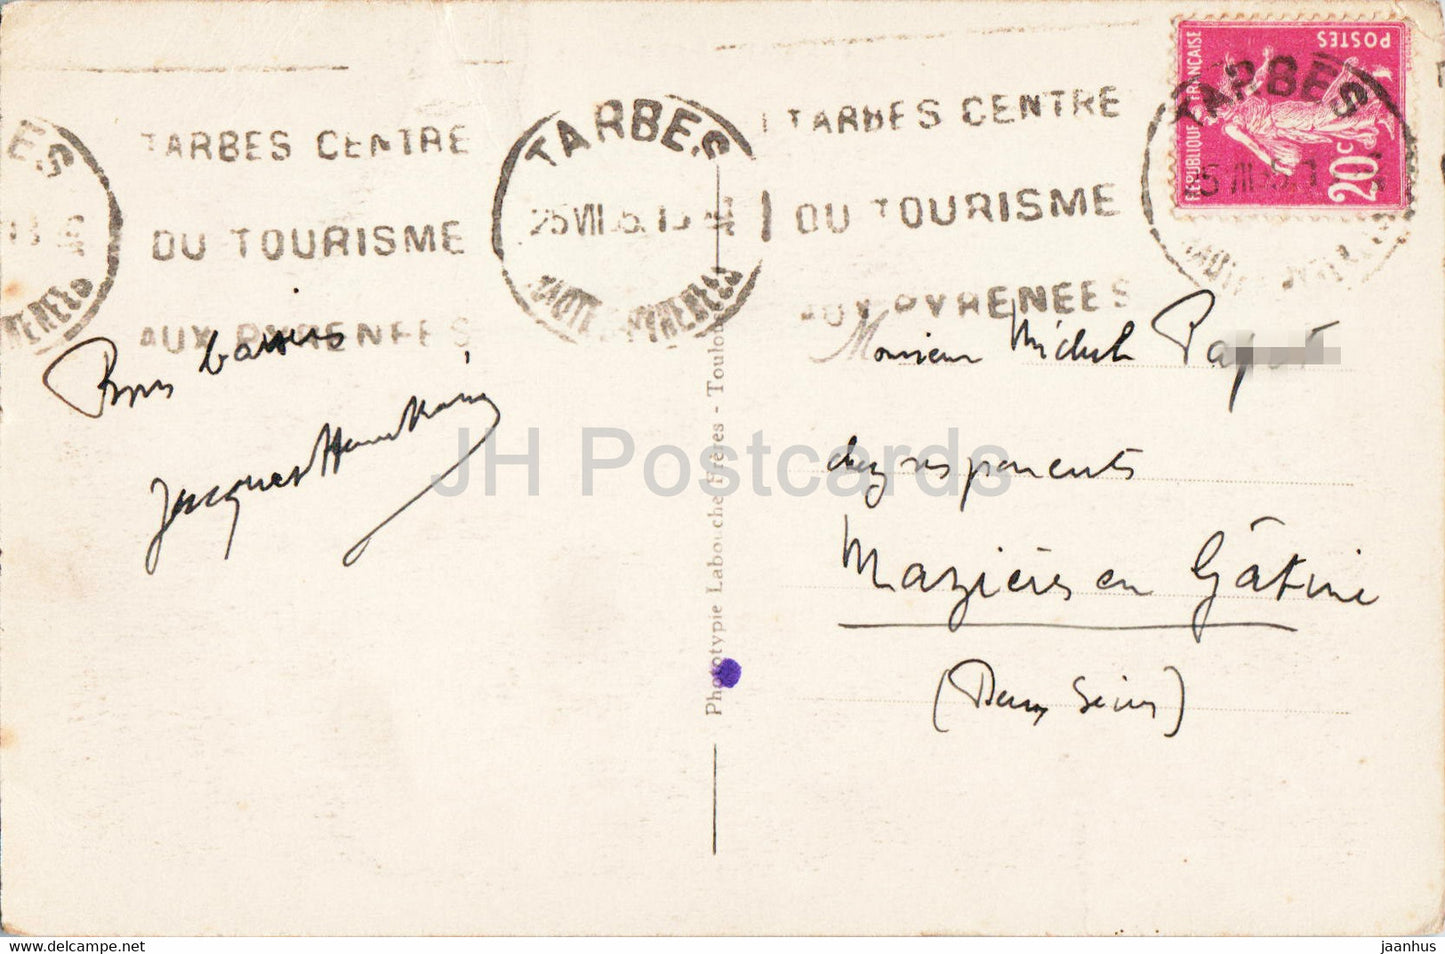 TARBES CENTRE
DU TOURISME
AUX PYRENEES
TARBES
25 VII
HAUTES PYRENEES
TARBES CENTRE
DU TOURISME
AUX PYRENEES
REPUBLIQUE FRANÇAISE
POSTES
20c
TARBES
Bons baisers
Jacques
Monsieur Michel
chez ses parents
Mazières en Gâtine
(Deux Sèvres)
Phototypie Labouche Frères - Toulouse
JH Postcards
jaanhus